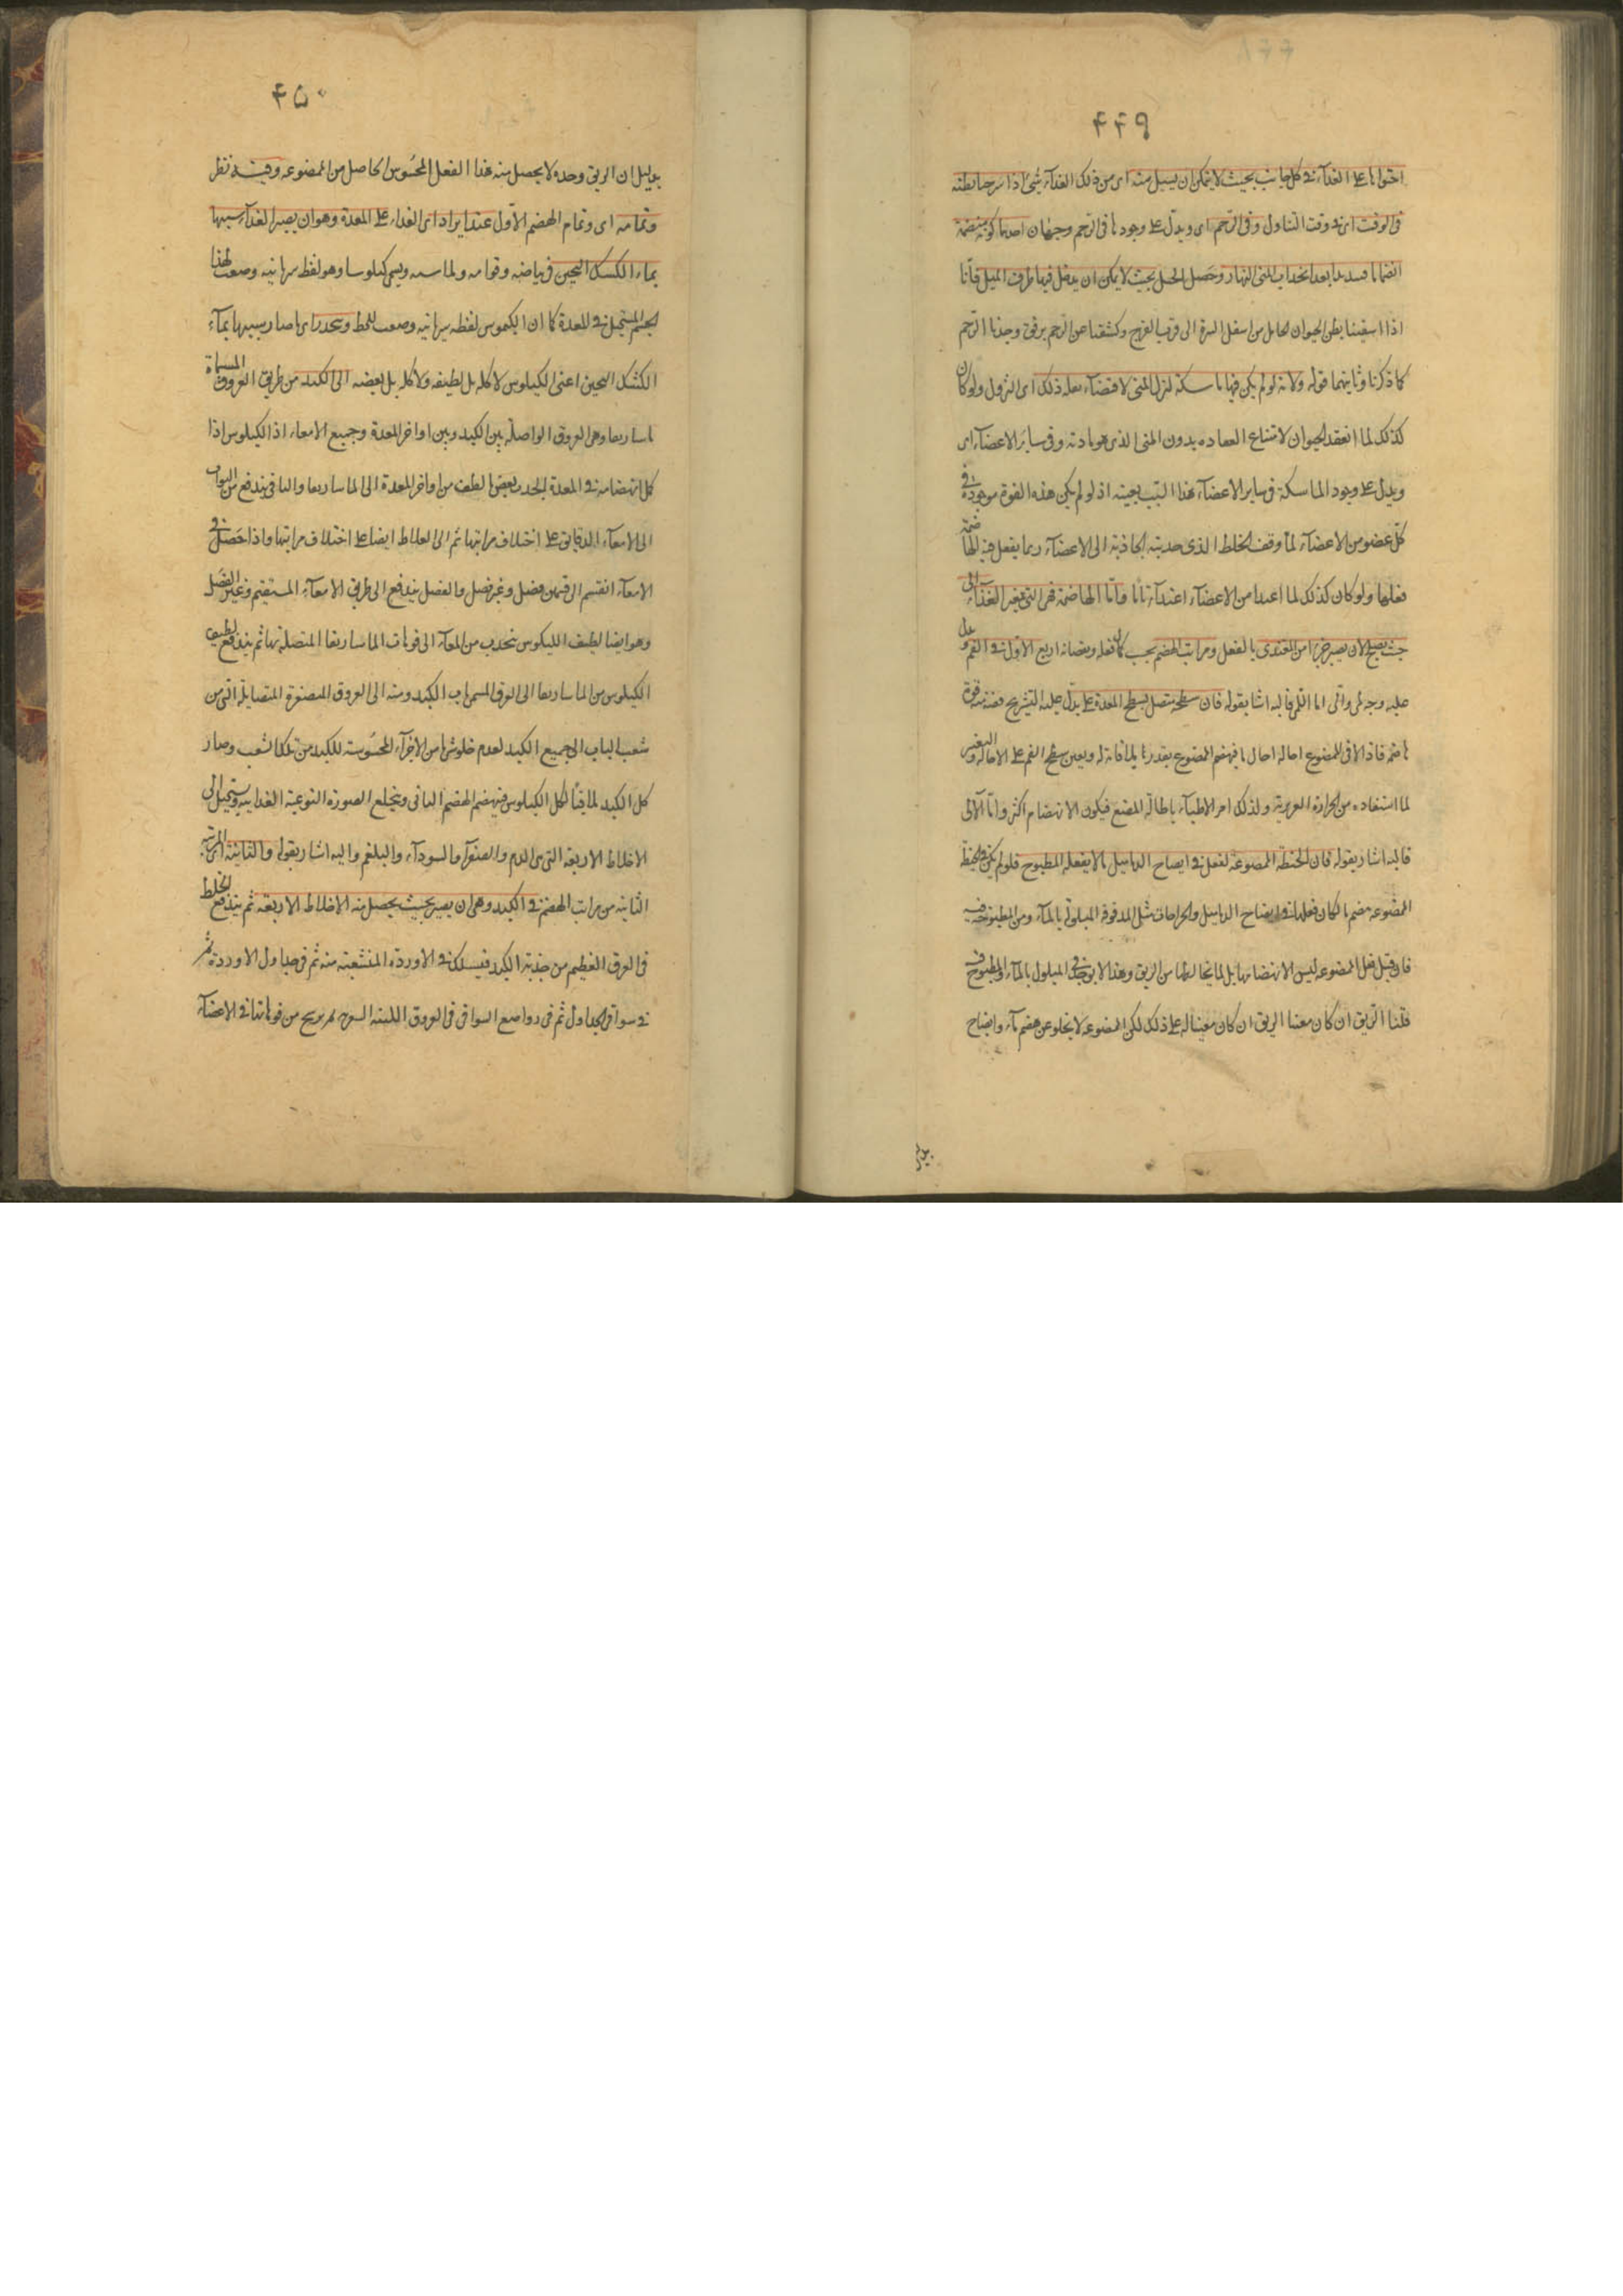 ۴۴۹
احتوائها على الغذاء من كل جانب بحيث لا يمكن ان يسيل منه اى من ذلك الغذاء شئ اذا شرحنا بطنه
فى الوقت اى فى وقت التناول وفى الرحم اى ويدل على وجودها فى الرحم وجهان احدهما كونه منضمة
انضماما شديدا بعد انجذاب المنى اليها وحصل الحبل بحيث لا يمكن ان يدخل فيها طرف الميل فانا
اذا شققنا بطن الحيوان الحامل من اسفل السرة الى قرب الفرج وكشفنا عن الرحم برفق وجدنا الرحم
كما ذكرنا وثانيهما قوله ولانه لو لم يكن فيها ماسكة لنزل المنى لاقتضاء ثقله ذلك اى النزول ولو كان
كذلك لما انعقد الحيوان لامتناع انعقاده بدون المنى الذى هو مادته وفى سائر الاعضاء اى
ويدل على وجود الماسكة فى ساير الاعضاء هذا السبب بعينه اذ لو لم يكن هذه القوة موجودة فى
كل عضو من الاعضاء لما وقف الخلط الذى جذبته الجاذبة الى الاعضاء ريثما يفعل فيه الهاضمة
فعلها ولو كان كذلك لما اغتذا من الاعضاء اغتذاء تاما واما الهاضمة فهى التى تغير الغذاء الى
حيث يصلح لان يصير جزءا من المغتذى بالفعل ومراتب الهضم بحسب كمال فعله ونقصانه اربع الاول فى الفم ويدل
عليه وجه لمى وانى اما اللمى فاليه اشار بقوله فان سطحه متصل بسطح المعدة على يدل عليه التشريح ففيه منه قوة
هاضمة فاذا لاقى الممضوغ احاله احالة ما فينهضم الممضوغ بقدر ما يلاقائه له ويعين سطح الفم على الاحالة والتغيير
لما استفاده من الحرارة الغريزية ولذلك امر الاطباء باطالة المضغ فيكون الانهضام اكثر واما الانى
فاليه اشار بقوله فان الحنطة الممضوغة تفعل فى انضاج الدماميل ما لا يفعله المطبوخ فلو لم يكن فى الحنطة
الممضوغة هضم ما لكان فعلها فى انضاج الدماميل والجراحات مثل المدقوقة المبلولة بالماء ومن المطبوخة فيه
فان قيل فعل الممضوغة ليس لانهضامها بل لما يخالطها من الريق وهذا لا يوجد فى المبلول بالماء والمطبوخ فيه
قلنا الريق ان كان معينا الريق ان كان معينا له على ذلك لكن الممضوغة لا يخلو عن هضم ما وانضاج
بدليل
۴۵۰
بدليل ان الريق وحده لا يحصل منه هذا الفعل المحسوس الحاصل من الممضوغة وفيه نظر
وتمامه اى وتمام الهضم الاول عند ايراد اى الغذاء على المعدة وهو ان يصير الغذاء شبيها
بماء الكشك الثخين فى بياضه وقوامه وملاسته ويسمى كيلوسا وهو لفظ سريانية وضعت لهذا
الجسم المستحيل فى المعدة كما ان الكيموس لفظه سريانية وضعت للخلط وينحدر اى ما صار شبيها بماء
الكشك الثخين اعنى الكيلوس لا كله بل لطيفه ولا كله بل بعضه الى الكبد من طريق العروق المسماة
ماساريقا وهى العروق الواصلة بين الكبد وبين اواخر المعدة وجميع الامعاء اذ الكيلوس اذا
كمل انهضامه فى المعدة انحدر بعض الطف من اواخر المعدة الى الماساريقا والباقى يندفع من البواب
الى الامعاء الدقاق على اختلاف مراتبها ثم الى الغلاظ ايضا على اختلاف مراتبها واذا حصل فى
الامعاء انقسم الى قسمين فضل وغير فضل والفضل يندفع الى طرق الامعاء المستقيم وغير الفضل
وهو ايضا لطيف الكيلوس ينجذب من المعاء الى فوهات الماساريقا المتصلة بها ثم يندفع لطيف
الكيلوس من الماساريقا الى العرق المسمى باب الكبد ومنه الى العروق المتصغرة المتضايلة التى من
شعب الباب الى جميع الكبد لعدم خلو شئ من الاجزاء المحسوسة للكبد من تلك الشعب وصار
كل الكبد ملاقيا لكل الكيلوس فينهضم الهضم الثانى وينخلع الصورة النوعية الغذائية ويستحيل الى
الاخلاط الاربعة التى هى الدم والصفراء والسوداء والبلغم واليه اشار بقوله والثانية المرتبة
الثانية من مراتب الهضم فى الكبد وهى ان يصير بحيث يحصل منه الاخلاط الاربعة ثم يندفع الخلط
فى العرق العظيم من حدبة الكبد فيسلك فى الاوردة المتشعبة منه ثم فى جداول الاوردة ثم
فى سواقى الجداول ثم فى رواضع السواقى فى العروق الليفية الشعرية ثم يرشح من فوهاتها فى الاعضاء